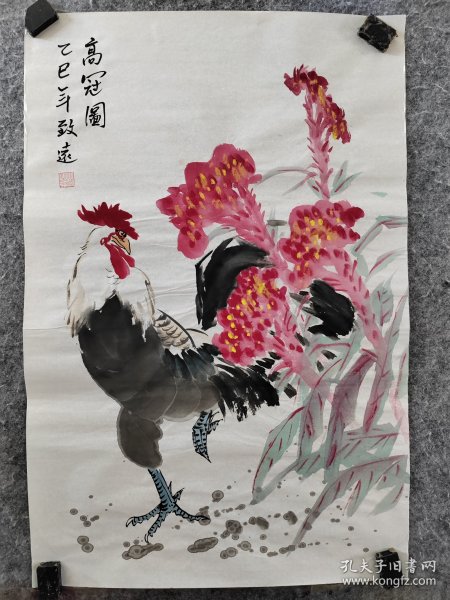 高冠圖
乙巳年致遠
孔夫子旧书网
www.kongfz.com